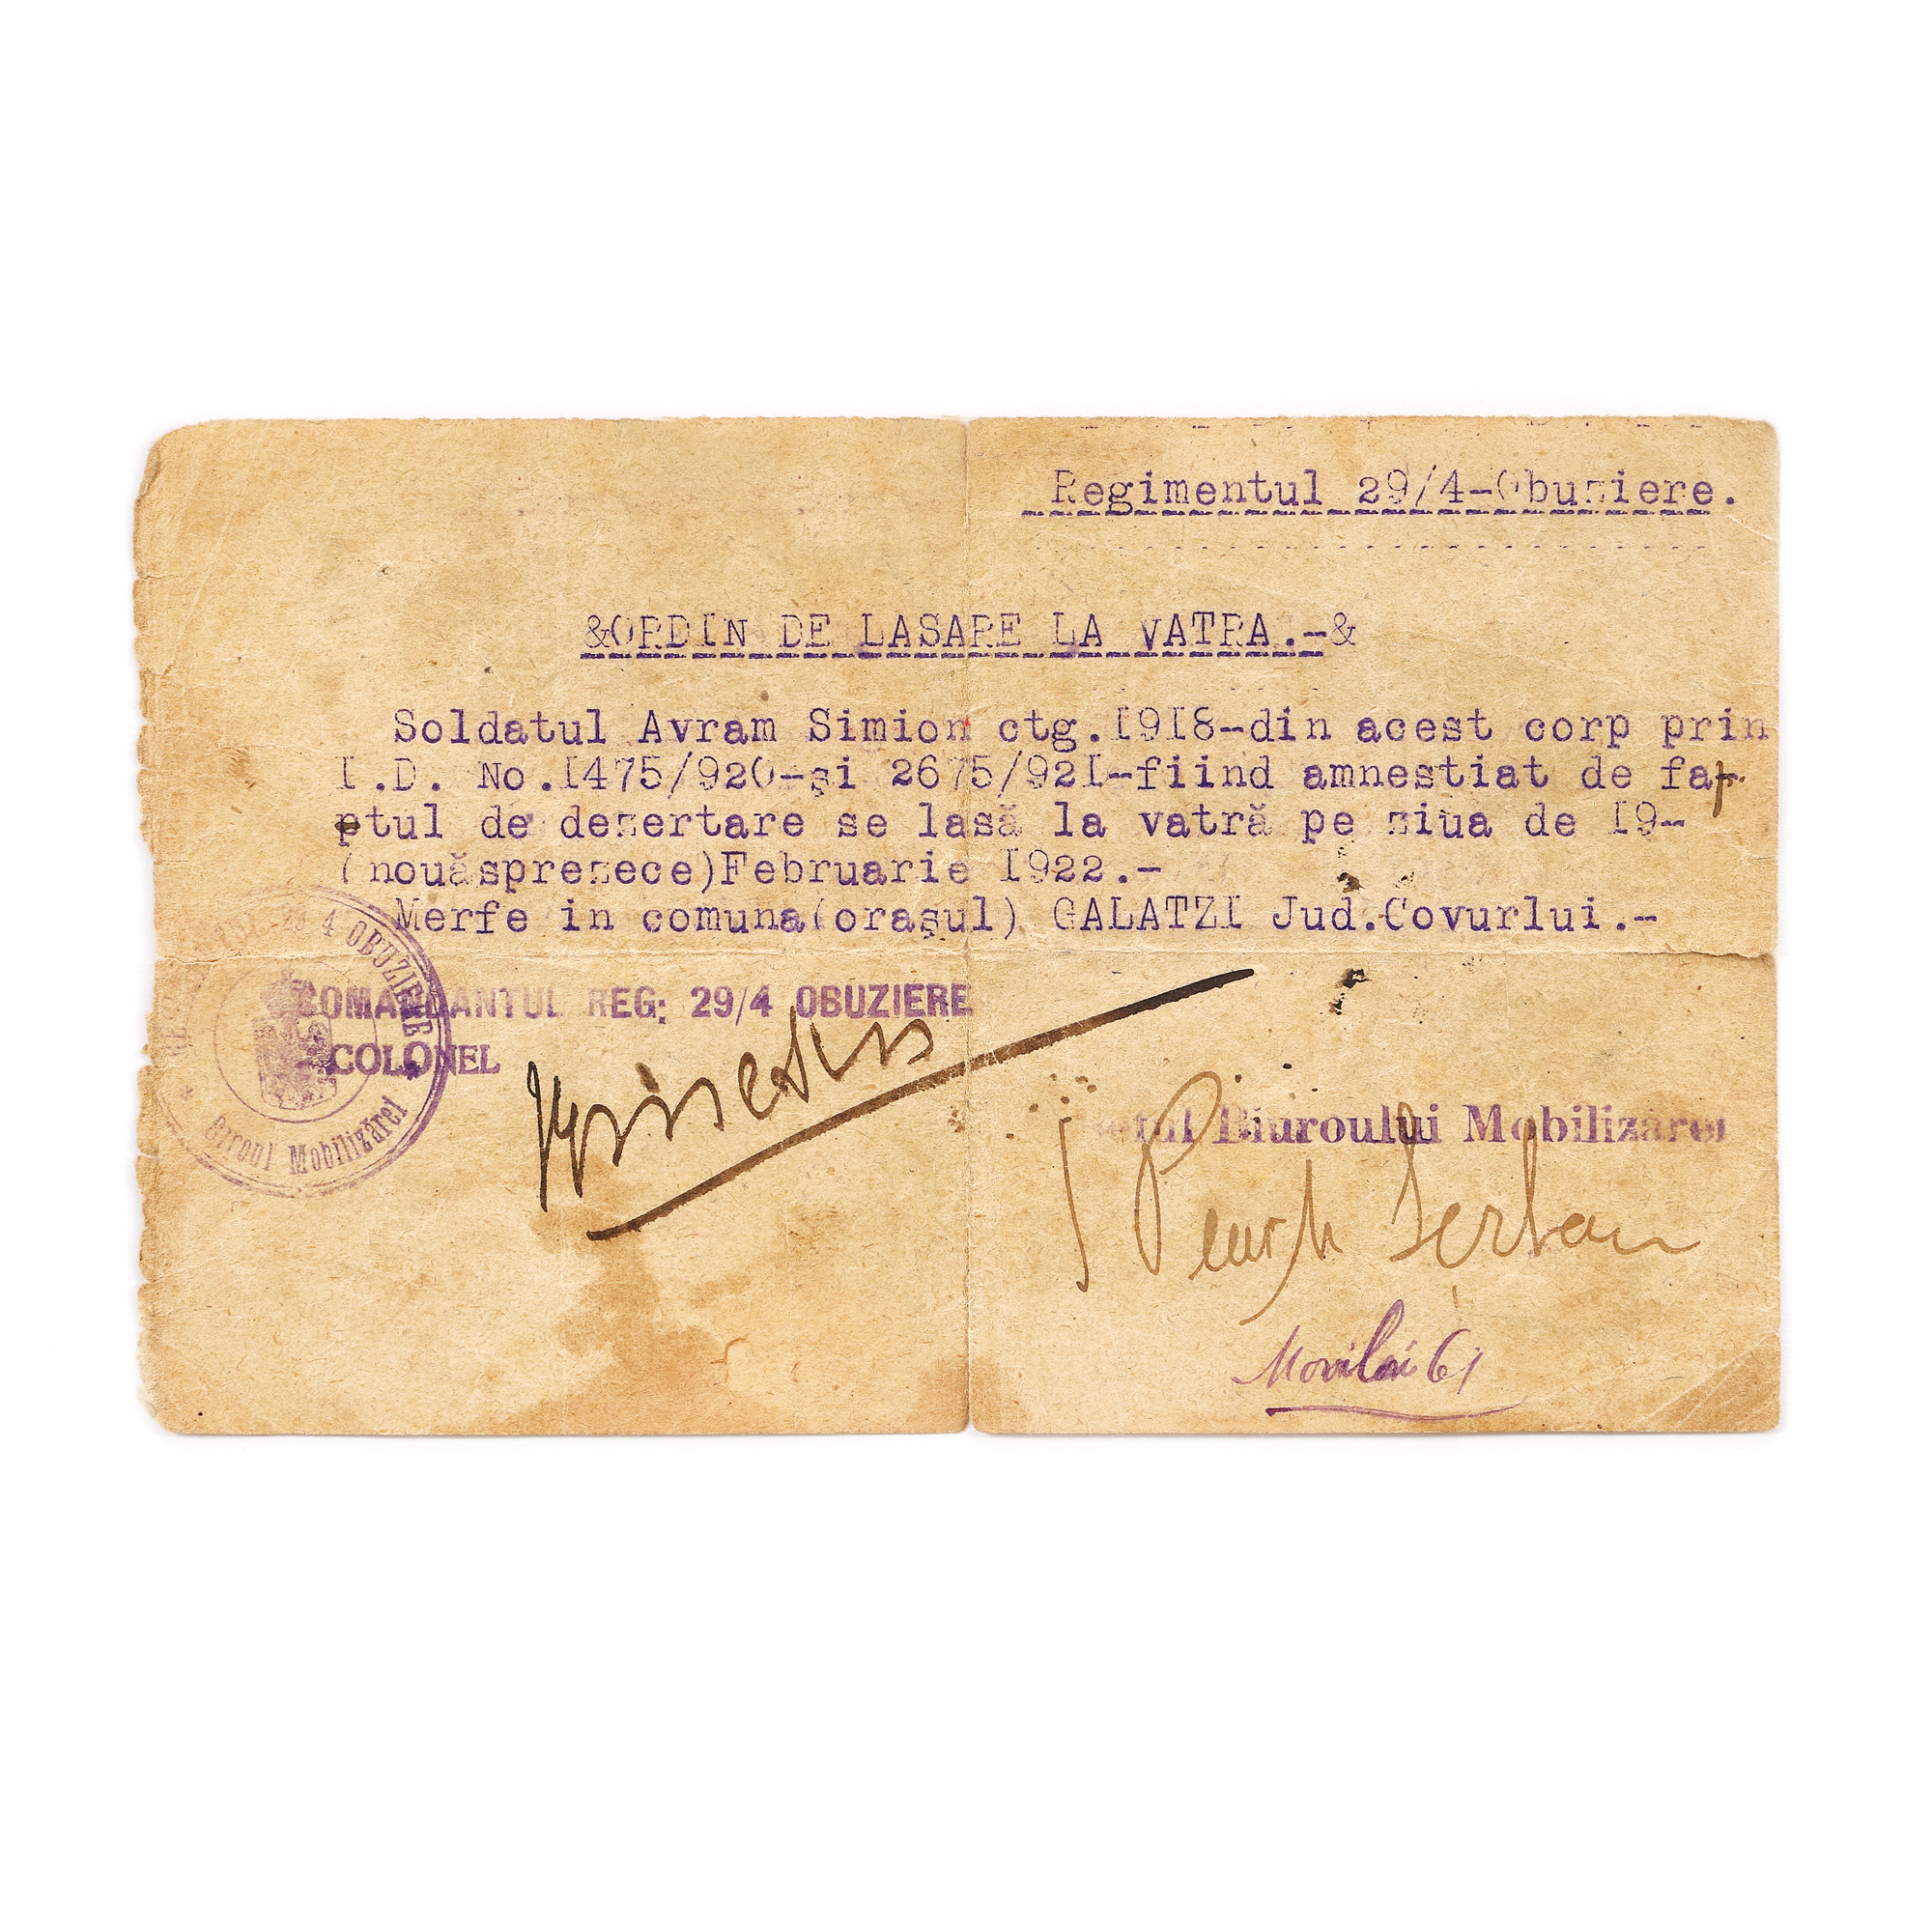 Regimentul 29/4-Obuziere.
&ORDIN DE LASARE LA VATRA.-&
Soldatul Avram Simion ctg.1918-din acest corp prin
I.D. No.1475/920-și 2675/921-fiind amnestiat de fap
ptul de dezertare se lasă la vatră pe ziua de 19-
(nouăsprezece)Februarie 1922.-
Merfe in comuna(orașul) GALATZI Jud.Covurlui.-
4 OBUZIERE
Mobilizărei
COMANDANTUL REG: 29/4 OBUZIERE
COLONEL
Biuroului Mobilizărei
Serban
Movilei 61